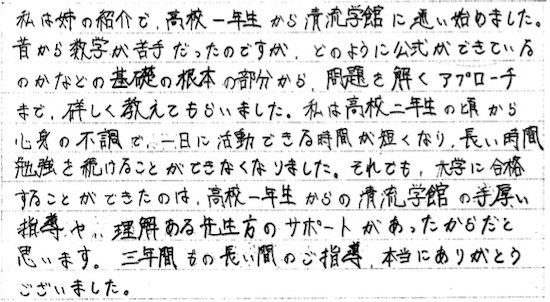 私は姉の紹介で、高校一年生から清流学館に通い始めました。
昔から数学が苦手だったのですが、どのように公式ができている
のかなどの基礎の根本の部分から、問題を解くアプローチ
まで、詳しく教えてもらいました。私は高校二年生の頃から
心身の不調で、一日に活動できる時間が短くなり、長い時間
勉強を続けることができなくなりました。それでも、大学に合格
することができたのは、高校一年生からの清流学館の手厚い
指導や、理解ある先生方のサポートがあったからだと
思います。三年間もの長い間のご指導、本当にありがとう
ございました。